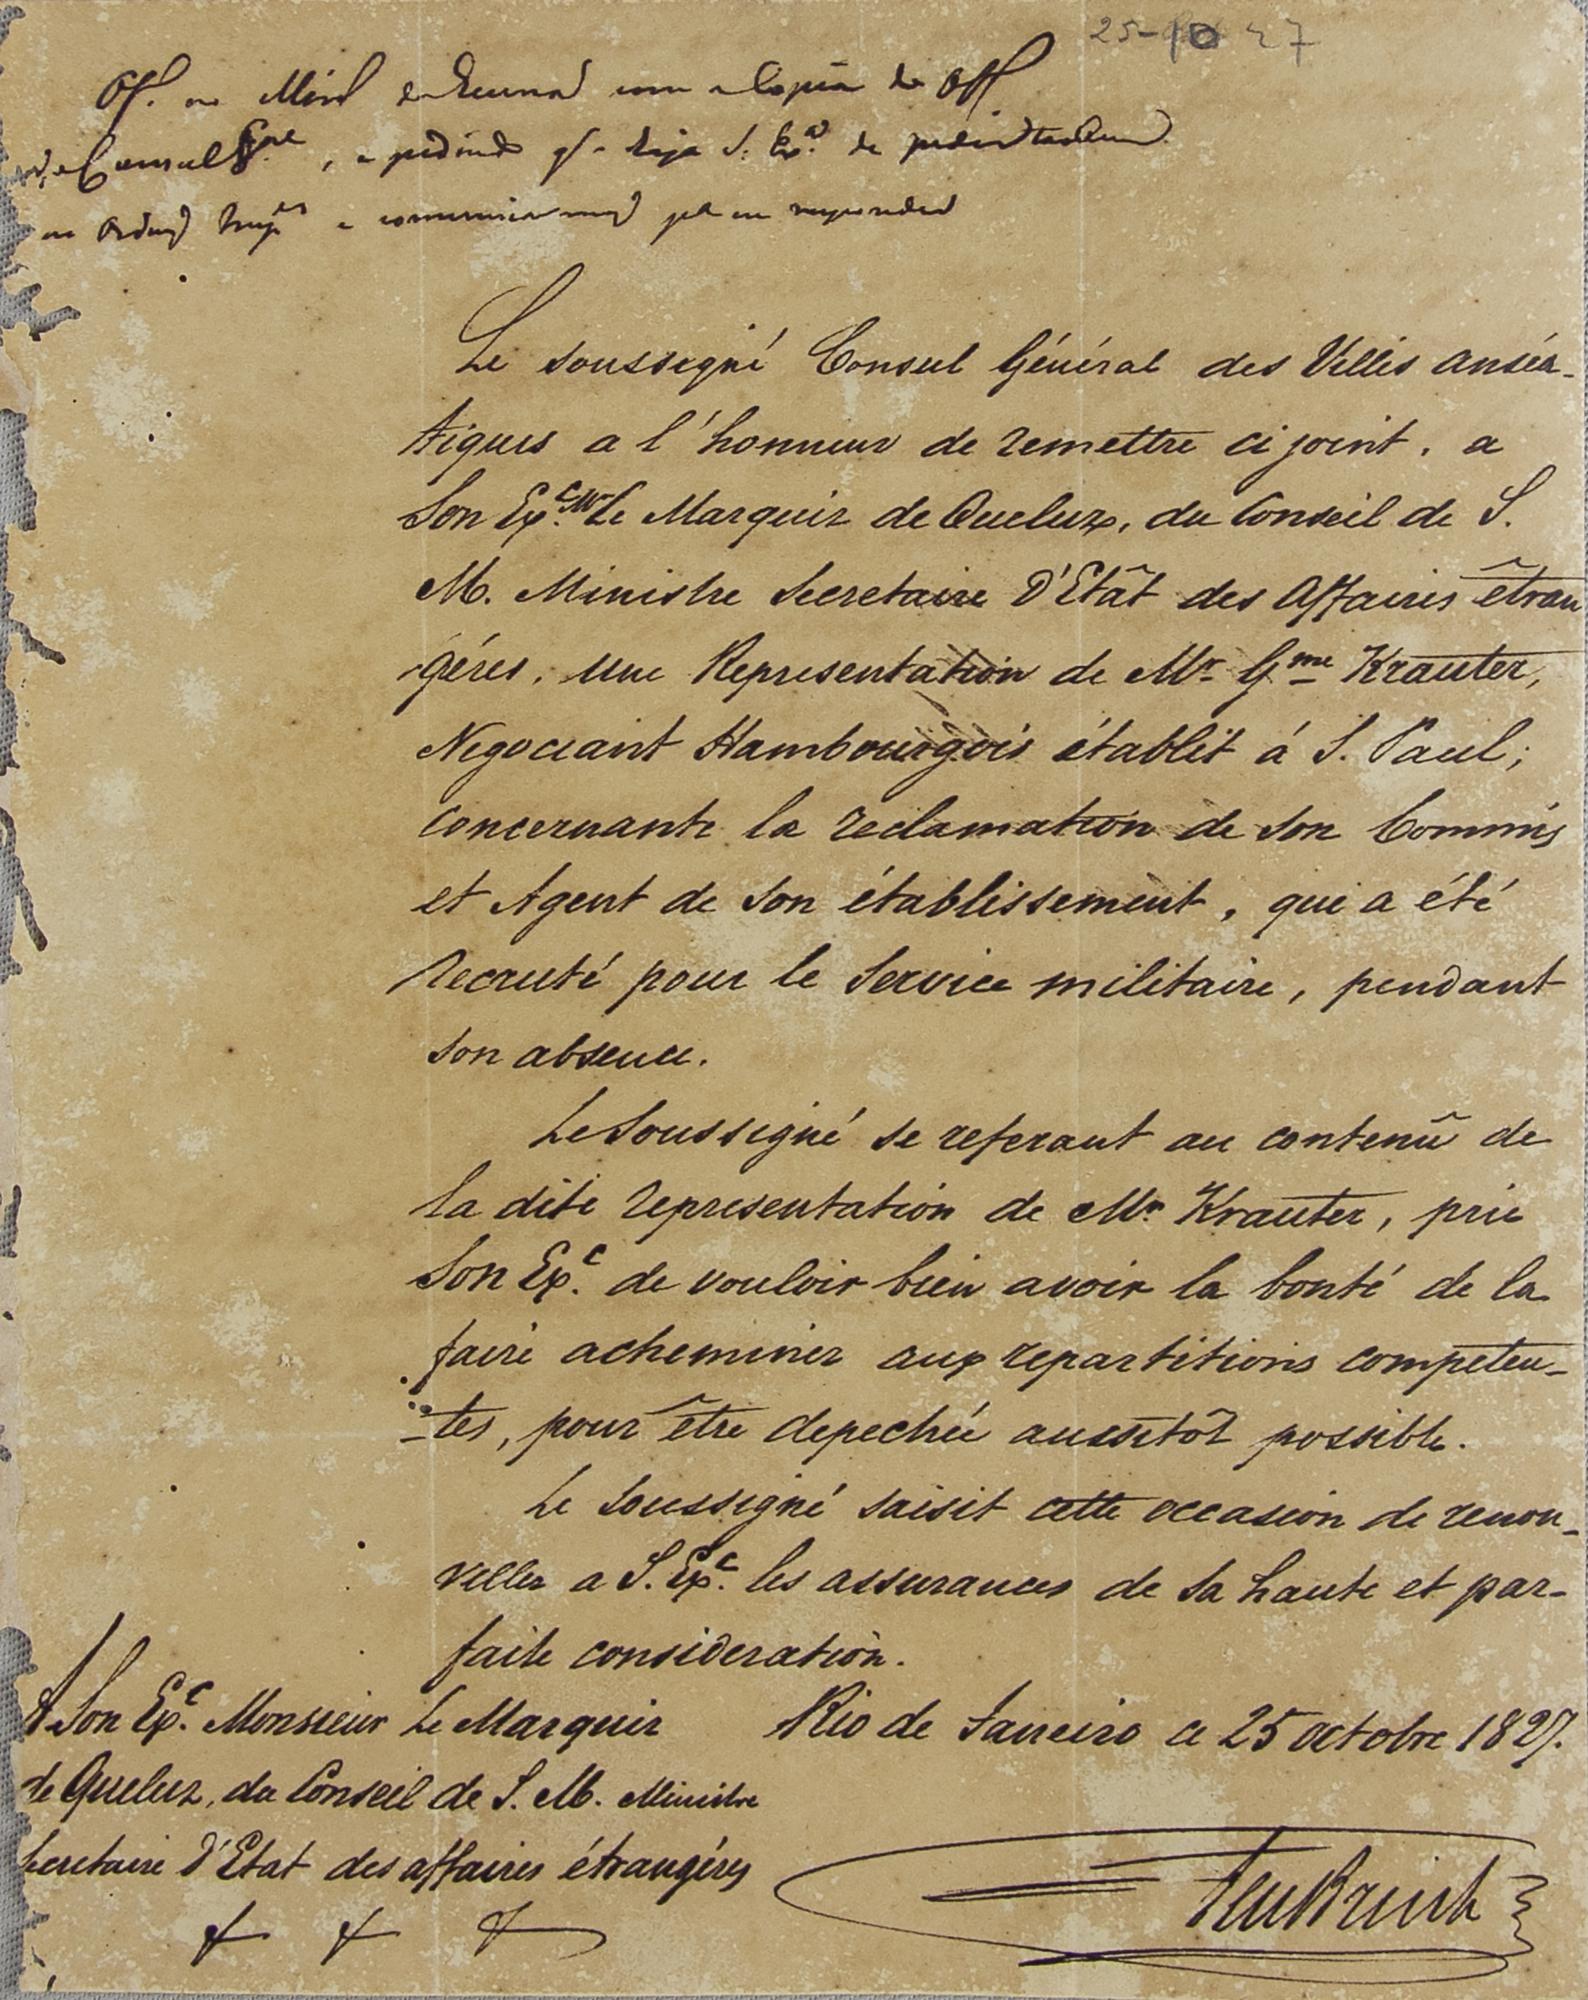 25-10 27
Of. ao Min com a Copia do Off
Consul G.ral, e pedindo q. haja S. Ex.a de
as Ordens e
Le soussigné Consul Général des Villes anséa-
tiques a l'honneur de remettre ci joint, a
Son Ex.c Mr Le Marquis de Queluz, du Conseil de S.
M. Ministre Secretaire D'Etât des Affaires êtran
géres, une Representation de Mr. Gme Krauter,
Negociant Hambourgois établit á S. Paul;
concernante la reclamation de son Commis
et Agent de son établissement, qui a été
recruté pour le Service militaire, pendant
son absence.
Le Soussigné se referant au contenû de
la dite representation de Mr. Krauter, prie
Son Ex.c de vouloir bien avoir la bonté de la
faire acheminer aux repartitions competen-
-tes, pour être depechée aussitôt possible.
Le Soussigné saisit cette occasion de renou-
veller a S. Ex.c les assurances de sa haute et par-
faite consideration.
Rio de Janeiro ce 25 octobre 1827.
A Son Ex.c Monsieur Le Marquis
de Queluz, du Conseil de S. M. Ministre
Secretaire d'Etat des affaires étrangéres